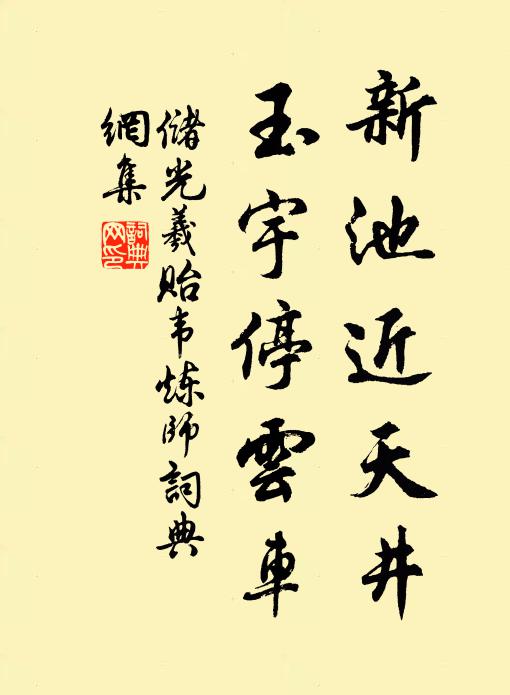 新池近天井
玉宇停雲車
儲光羲貽韦炼师詞典
網集
詞典
网印